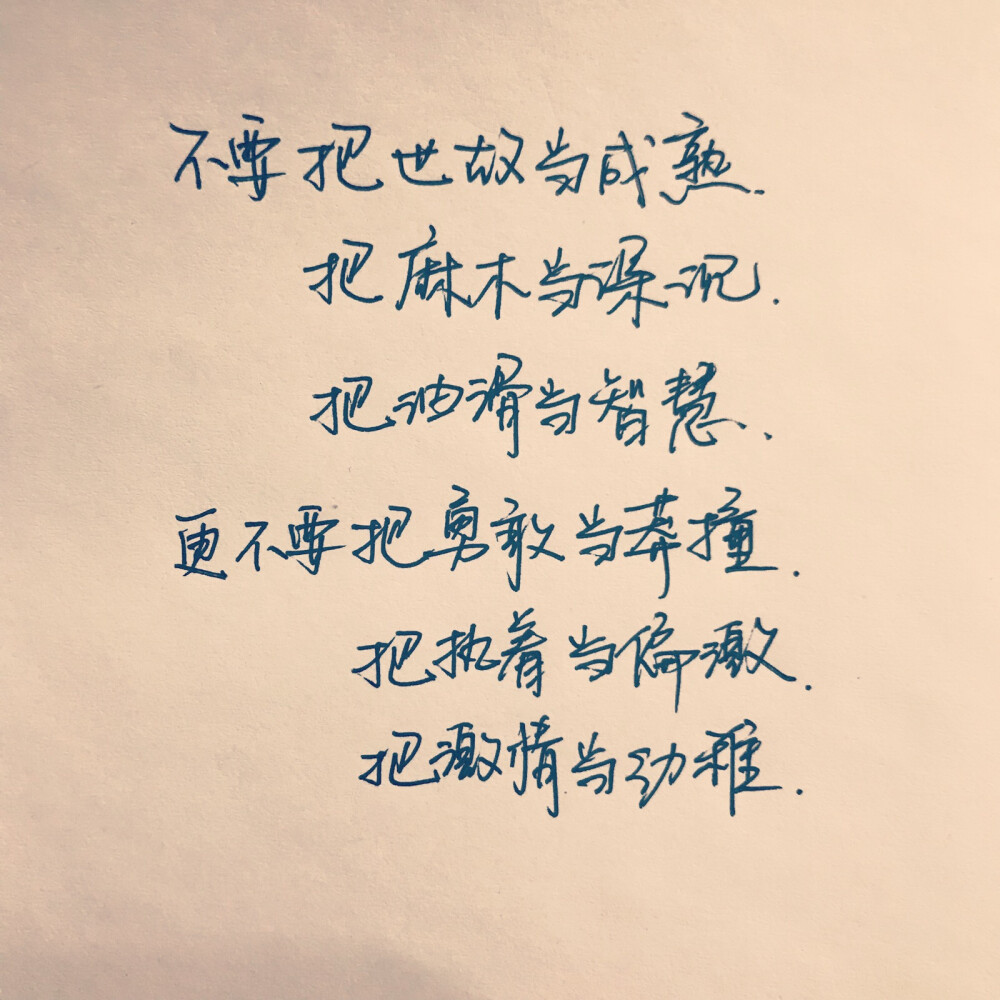 不要把世故当成熟.
把麻木当深沉.
把油滑当智慧.
更不要把勇敢当莽撞.
把执着当偏激.
把激情当幼稚.